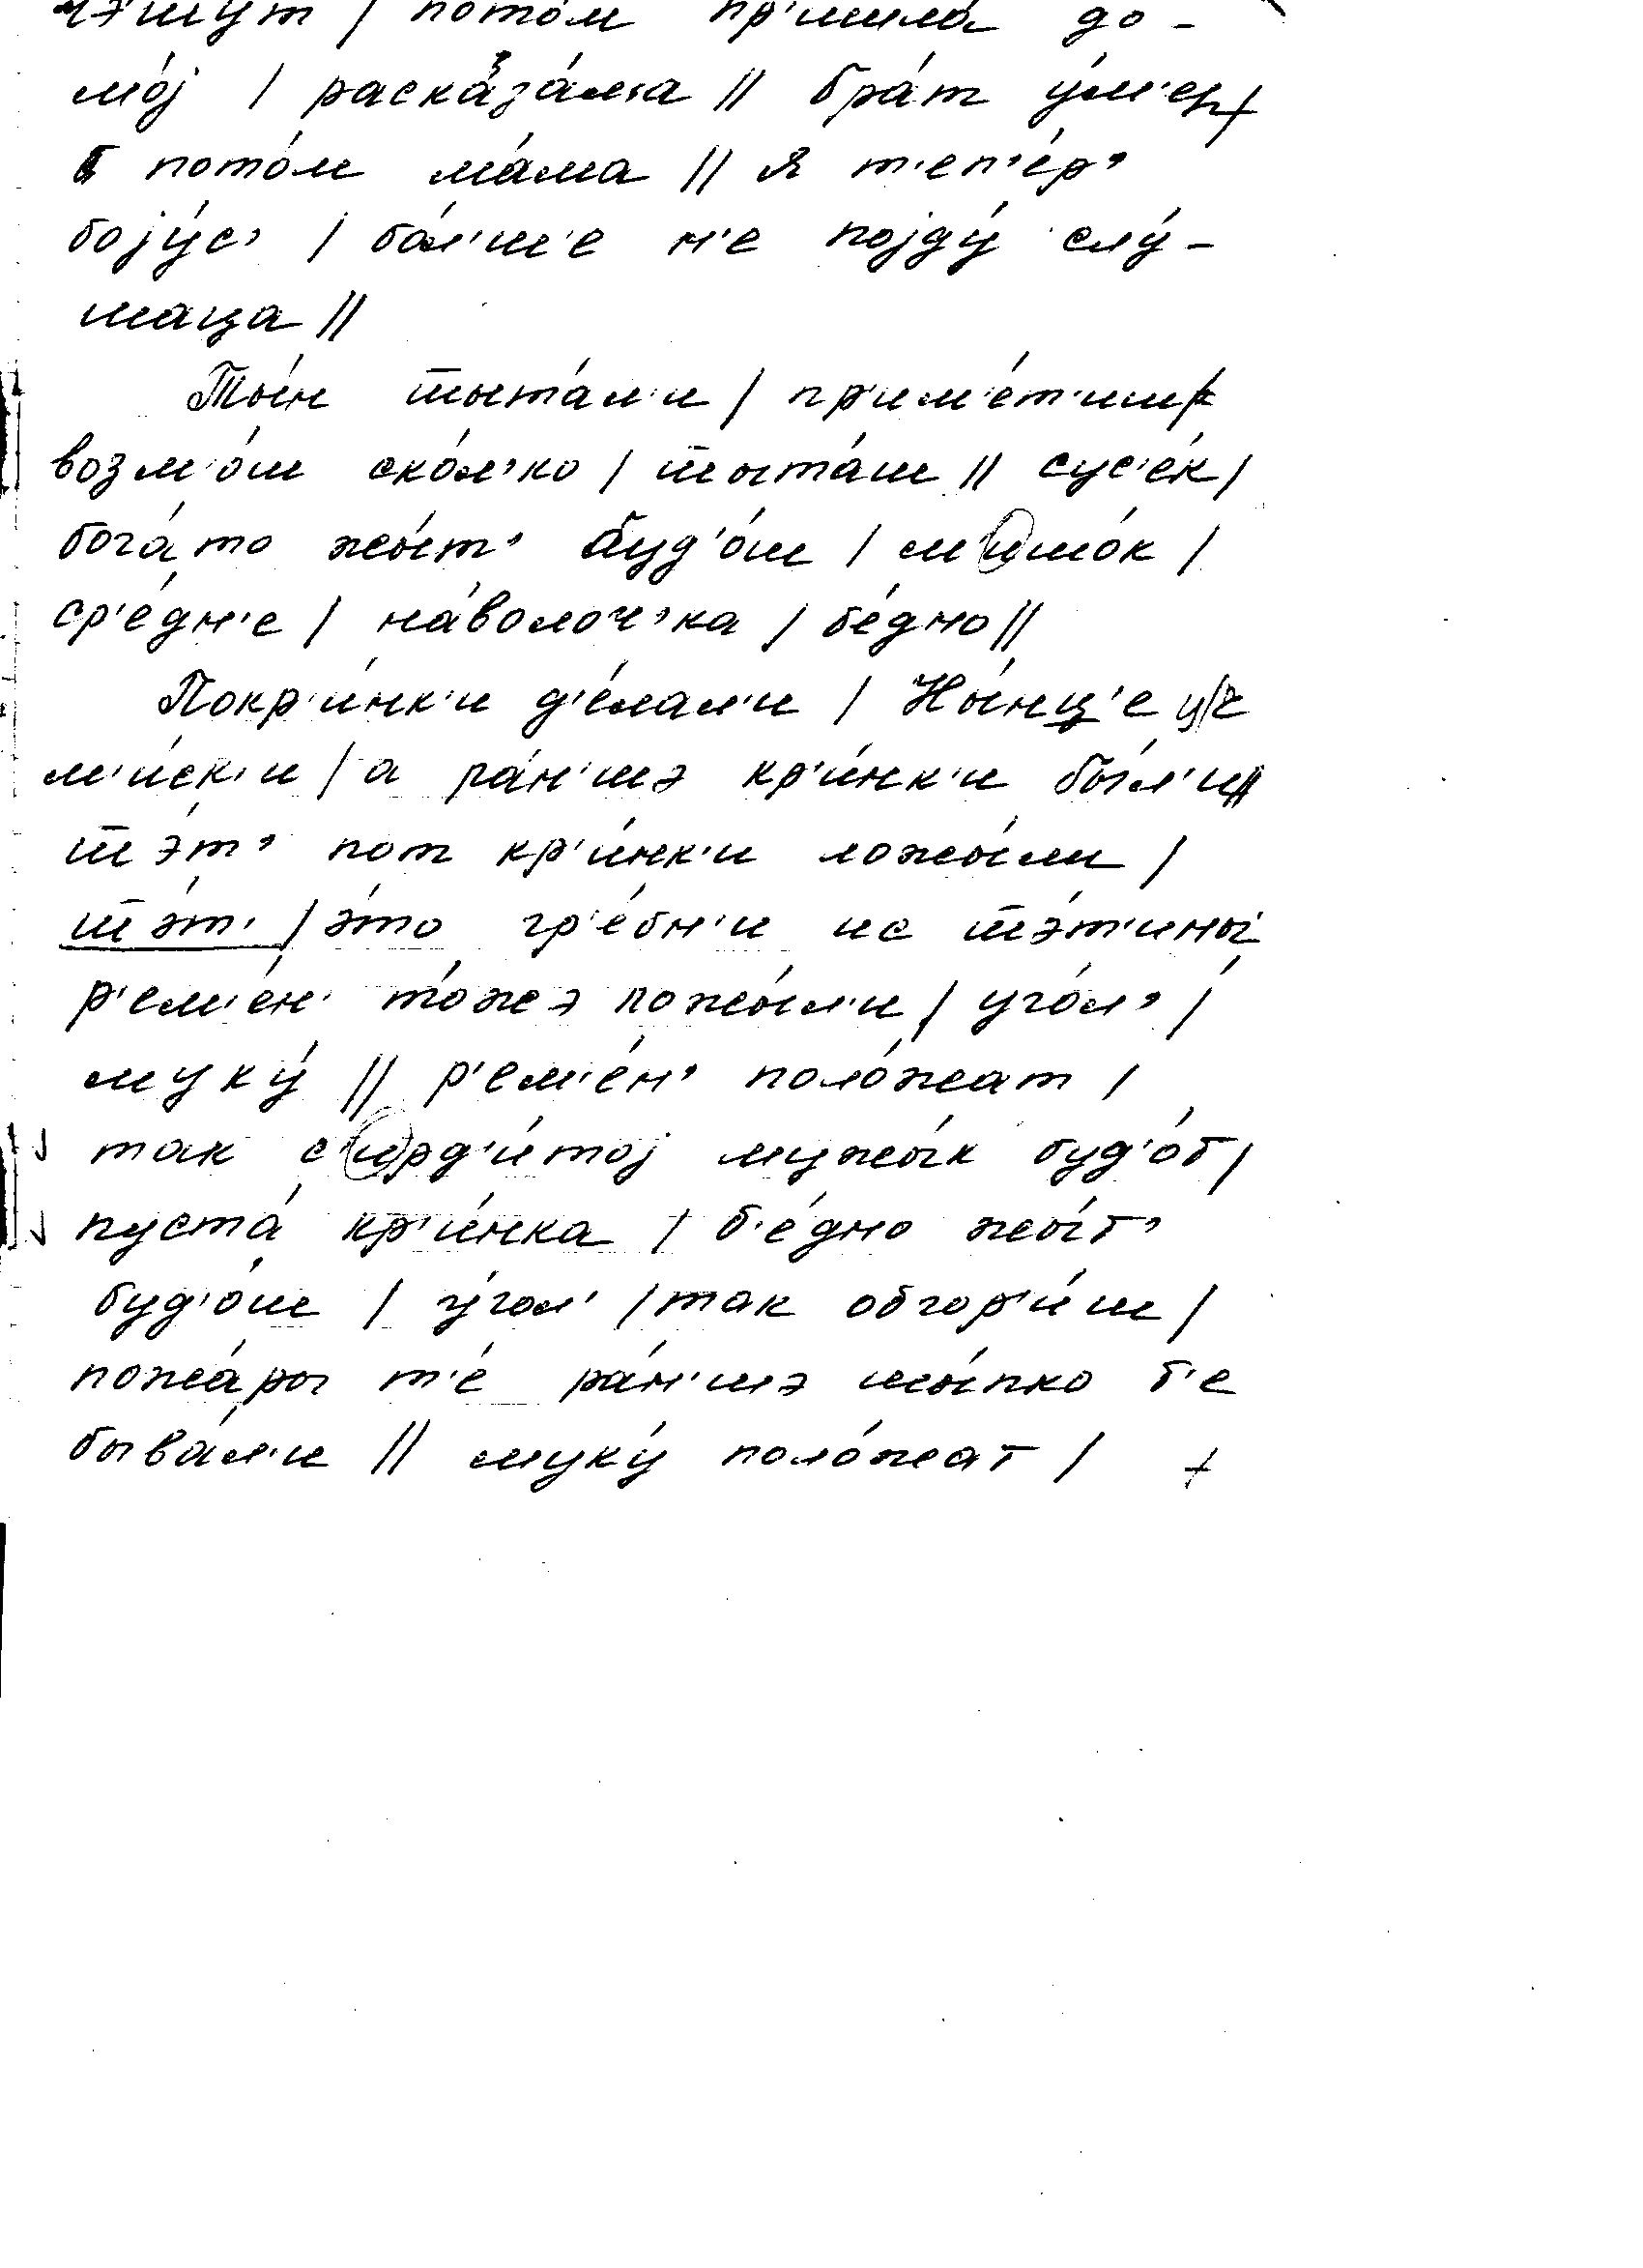 пото́м пр'ишла́ до-
мо́j / расказа́ла // бра́т у́м'ер
потом ма́ма // я т'еп'е́р'
боjу́с' / бо́л'ш'е н'е поjду́ слу́-
шаца //
Ты́н шшыта́л'и / пр'им'е́т'иш
возм'о́ш ско́л'ко / шшыта́ш // сус'е́к /
бога́то жы́т' буд'о́ш / м'ишо́к /
ср'е́дн'е / на́волоч'ка / бе́дно //
Покр'и́нк'и д'е́лал'и / Ны́нц'е ц/ч
м'и́ск'и / а ра́н'шэ кр'и́нк'и бы́л'и //
шшэт' пот кр'и́нк'и ложы́ли /
шшэ́т' / э́то гр'е́бн'и ис шшэ́т'ины
р'ем'е́н' то́жэ ложы́л'и / у́гол' /
муку́ // р'ем'е́н' поло́жат /
так с'ирд'и́тоj мужы́к буд'о́т /
пуста́ кр'и́нка / б'е́дно жы́т'
буд'о́ш / у́гол' / так обгор'и́ш /
пожа́ры т'е́ ра́н'шэ шы́пко б'е
быва́л'и // муку́ поло́жат / +